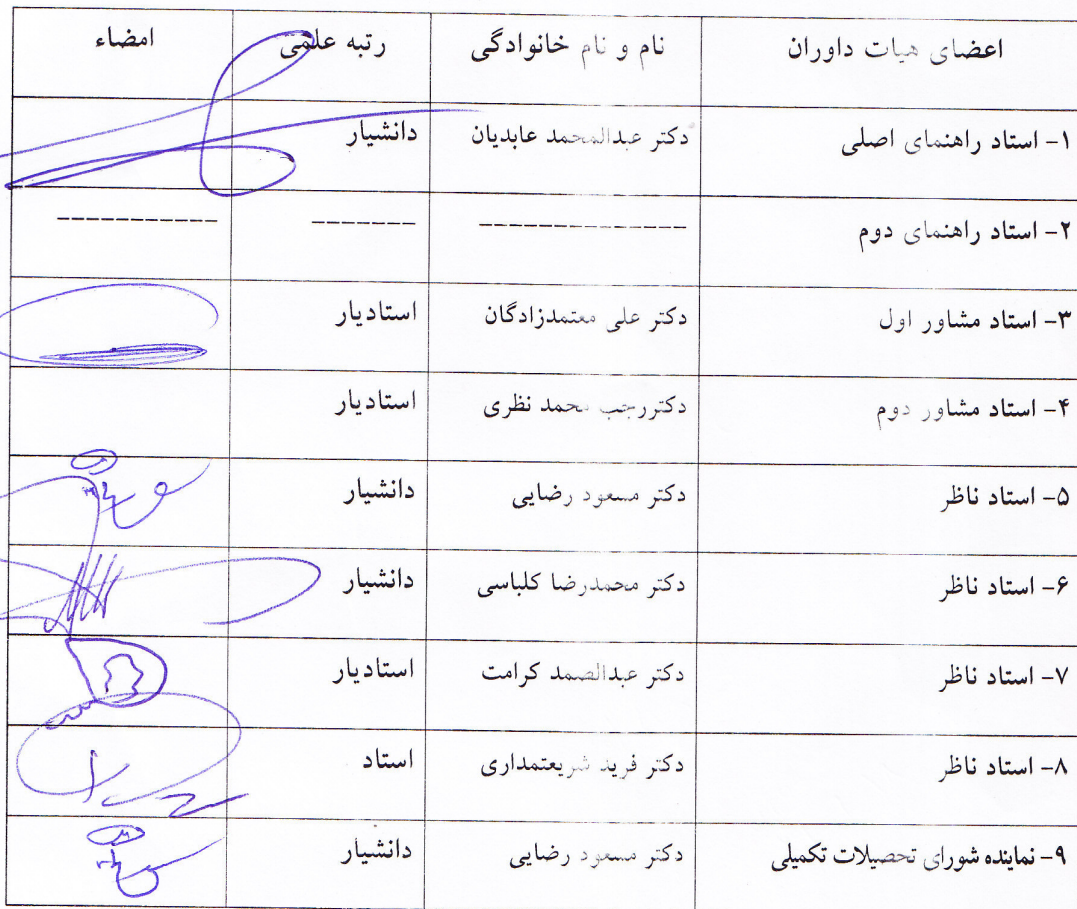 اعضای هیات داوران نام و نام خانوادگی رتبه علمی امضاء
۱- استاد راهنمای اصلی دکتر عبدالمحمد عابدیان دانشیار
۲- استاد راهنمای دوم -------------- ------- -----------
۳- استاد مشاور اول دکتر علی معتمدزادگان استادیار
۴- استاد مشاور دوم دکتررجب محمد نظری استادیار
۵- استاد ناظر دکتر مسعود رضایی دانشیار
۶- استاد ناظر دکتر محمدرضا کلباسی دانشیار
۷- استاد ناظر دکتر عبدالصمد کرامت استادیار
۸- استاد ناظر دکتر فرید شریعتمداری استاد
۹- نماینده شورای تحصیلات تکمیلی دکتر مسعود رضایی دانشیار